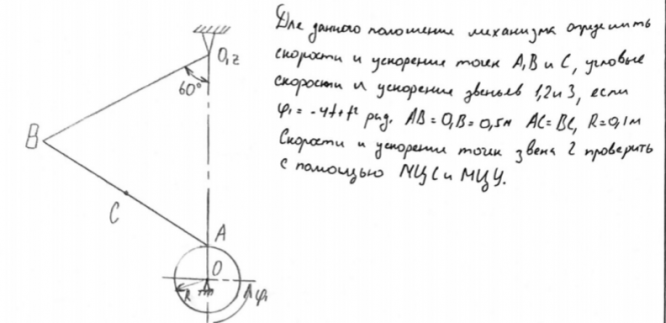 Для данного положения механизма определить
скорости и ускорения точек A, B и C, угловые
скорости и ускорения звеньев 1, 2 и 3, если
φ₁ = -4t+t² рад. AB = O₁B = 0,5м AC = BC, R = 0,1м
Скорости и ускорения точек звена 2 проверить
с помощью МЦС и МЦУ.
O₁z
60°
B
C
A
O
R
φ₁